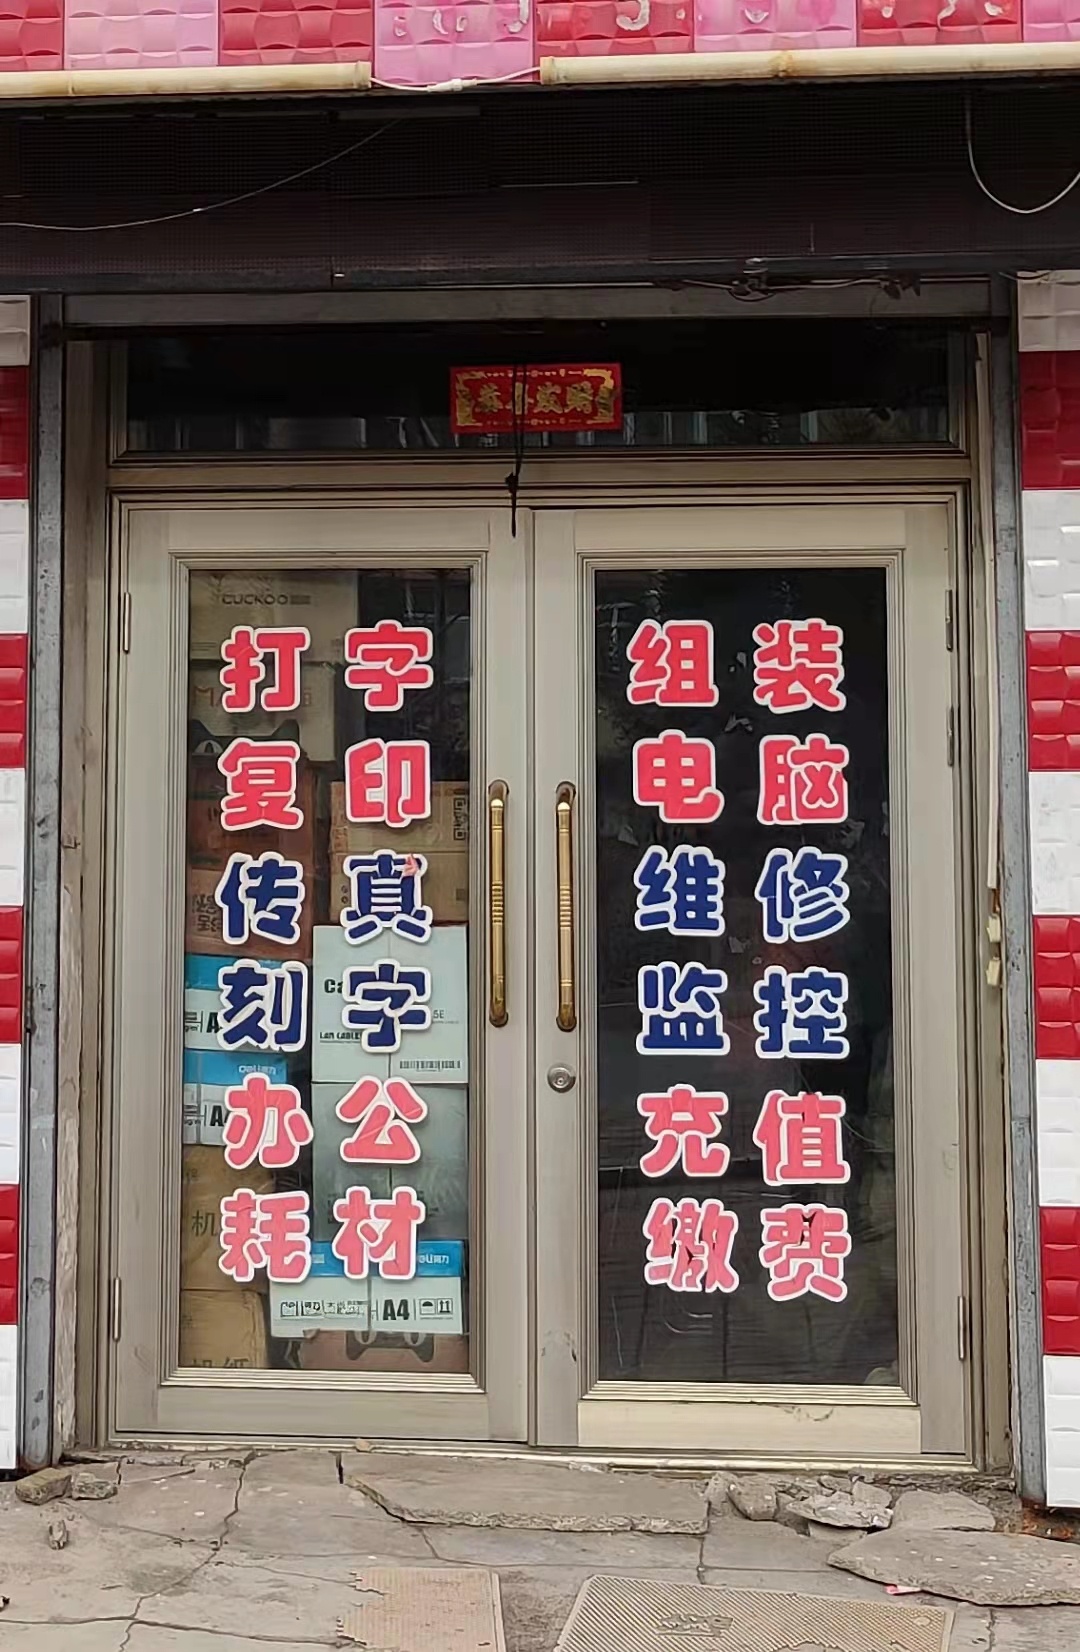 恭喜发财
CUCKOO
打字
复印
传真
刻字
办公
耗材
组装
电脑
维修
监控
充值
缴费
LAN CABLE
A4